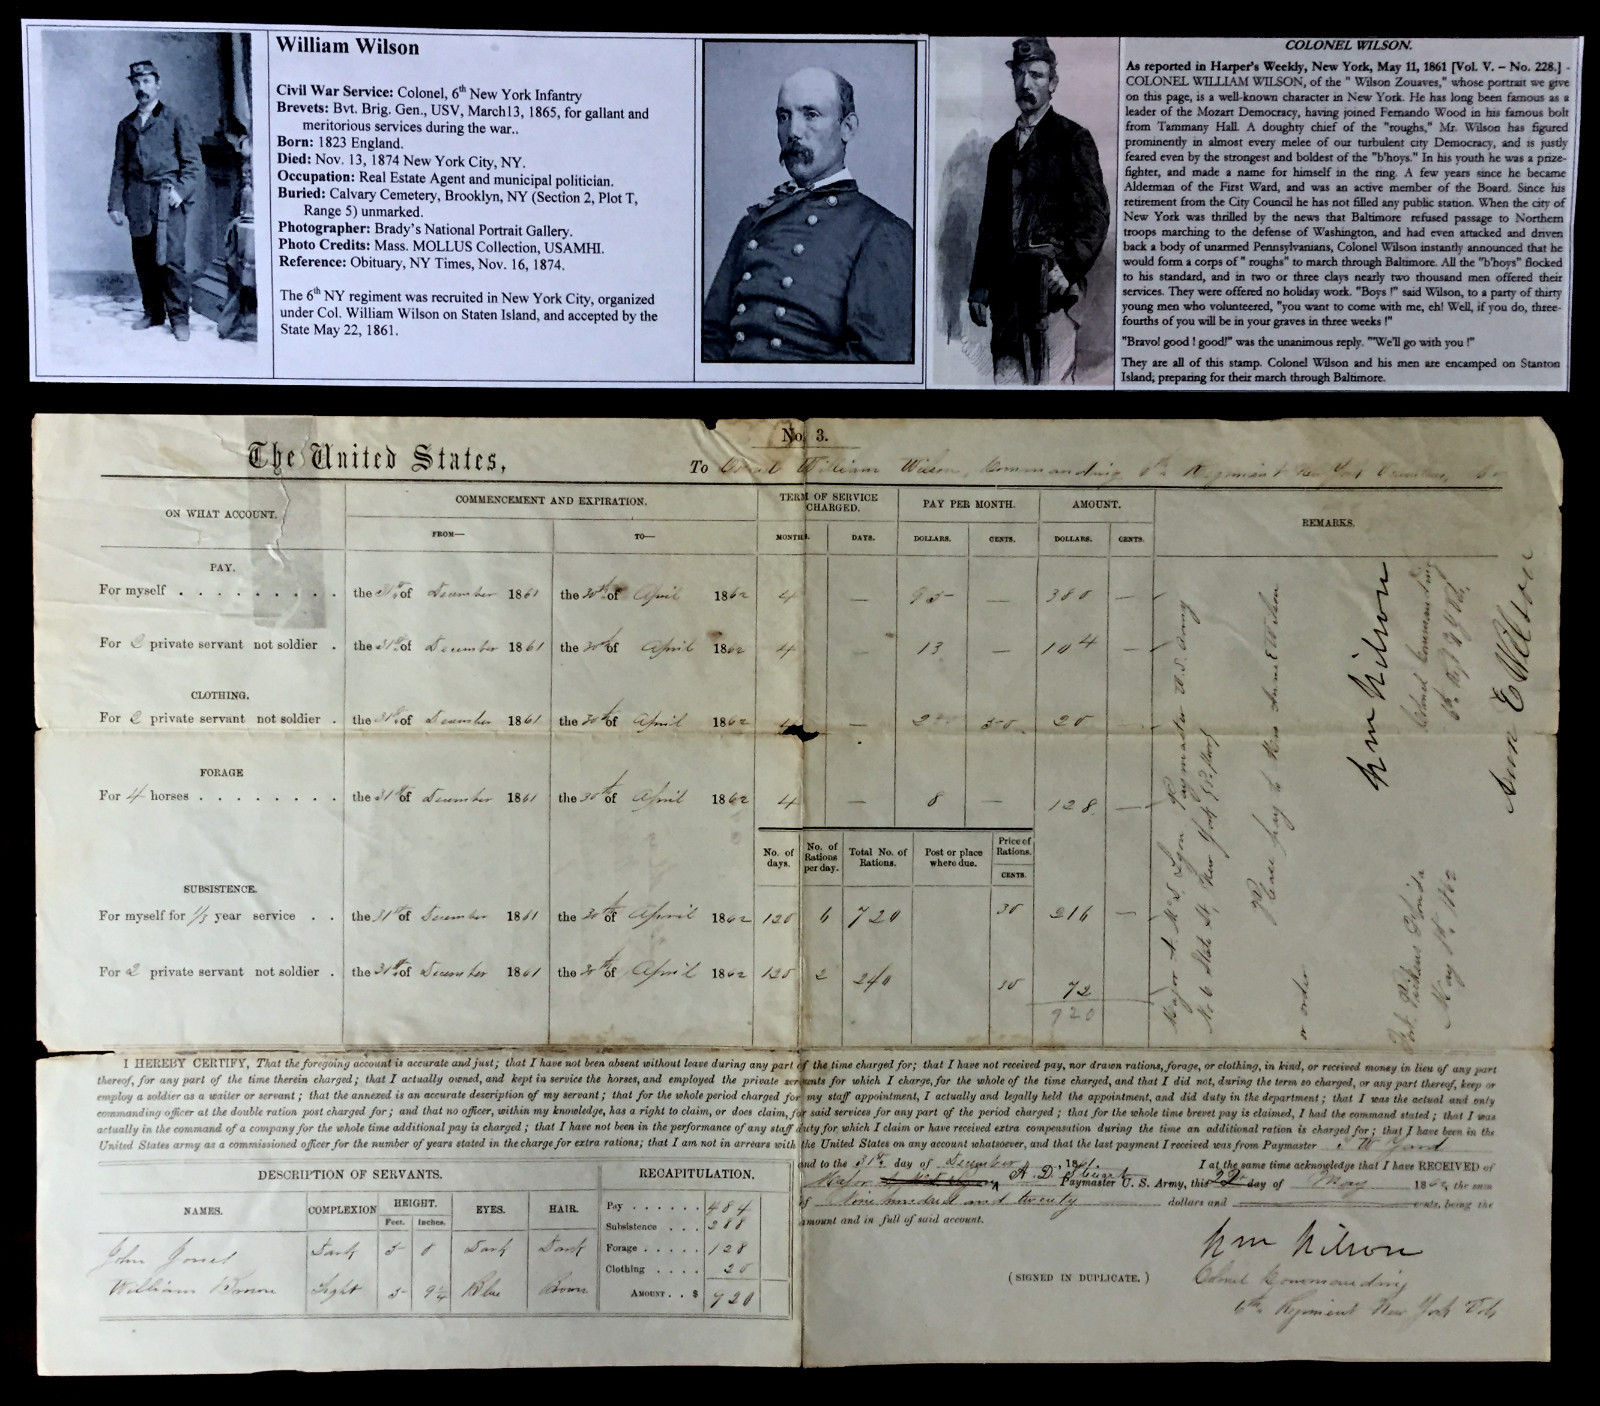 William Wilson
Civil War Service: Colonel, 6th New York Infantry
Brevets: Bvt. Brig. Gen., USV, March13, 1865, for gallant and
meritorious services during the war..
Born: 1823 England.
Died: Nov. 13, 1874 New York City, NY.
Occupation: Real Estate Agent and municipal politician.
Buried: Calvary Cemetery, Brooklyn, NY (Section 2, Plot T,
Range 5) unmarked.
Photographer: Brady's National Portrait Gallery.
Photo Credits: Mass. MOLLUS Collection, USAMHI.
Reference: Obituary, NY Times, Nov. 16, 1874.
The 6th NY regiment was recruited in New York City, organized
under Col. William Wilson on Staten Island, and accepted by the
State May 22, 1861.
COLONEL WILSON.
As reported in Harper's Weekly, New York, May 11, 1861 [Vol. V. – No. 228.] -
COLONEL WILLIAM WILSON, of the " Wilson Zouaves," whose portrait we give
on this page, is a well-known character in New York. He has long been famous as a
leader of the Mozart Democracy, having joined Fernando Wood in his famous bolt
from Tammany Hall. A doughty chief of the "roughs," Mr. Wilson has figured
prominently in almost every melee of our turbulent city Democracy, and is justly
feared even by the strongest and boldest of the "b'hoys." In his youth he was a prize-
fighter, and made a name for himself in the ring. A few years since he became
Alderman of the First Ward, and was an active member of the Board. Since his
retirement from the City Council he has not filled any public station. When the city of
New York was thrilled by the news that Baltimore refused passage to Northern
troops marching to the defense of Washington, and had even attacked and driven
back a body of unarmed Pennsylvanians, Colonel Wilson instantly announced that he
would form a corps of " roughs" to march through Baltimore. All the "b'hoys" flocked
to his standard, and in two or three clays nearly two thousand men offered their
services. They were offered no holiday work. "Boys !" said Wilson, to a party of thirty
young men who volunteered, "you want to come with me, eh! Well, if you do, three-
fourths of you will be in your graves in three weeks !"
"Bravo! good ! good!" was the unanimous reply. "'We'll go with you !"
They are all of this stamp. Colonel Wilson and his men are encamped on Stanton
Island; preparing for their march through Baltimore.
No. 3.
The United States,
To William Wilson, Commanding 6th Regiment New York
ON WHAT ACCOUNT. COMMENCEMENT AND EXPIRATION. TERM OF SERVICE CHARGED. PAY PER MONTH. AMOUNT. REMARKS.
FROM— TO— MONTHS. DAYS. DOLLARS. CENTS. DOLLARS. CENTS.
PAY.
For myself . . . . . . . . . the 31st of December 1861 the 30th of April 1862 4 — 95 — 380 —
For 2 private servant not soldier . the 31st of December 1861 the 30th of April 1862 4 — 13 — 104 —
CLOTHING.
For 2 private servant not soldier . the 31st of December 1861 the 30th of April 1862 4 — 2 50 20 —
FORAGE
For 4 horses . . . . . . . . the 31st of December 1861 the 30th of April 1862 4 — 8 — 128 —
No. of days. No. of Rations per day. Total No. of Rations. Post or place where due. Price of Rations. CENTS.
SUBSISTENCE.
For myself for 1/3 year service . . the 31st of December 1861 the 30th of April 1862 120 6 720 30 216 —
For 2 private servant not soldier . the 31st of December 1861 the 30th of April 1862 120 2 240 30 72
920
Major A. McD. Lyon Paymaster U.S. Army
No 6 State St, New York
Please pay to Mrs Anne E Wilson
or order
Wm Wilson
Colonel Commanding
6th Regt N.Y. Vols
Fort Pickens Florida
May 1st 1862
Ann E Wilson
I HEREBY CERTIFY, That the foregoing account is accurate and just; that I have not been absent without leave during any part of the time charged for; that I have not received pay, nor drawn rations, forage, or clothing, in kind, or received money in lieu of any part
thereof, for any part of the time therein charged; that I actually owned, and kept in service the horses, and employed the private servants for which I charge, for the whole of the time charged, and that I did not, during the term so charged, or any part thereof, keep or
employ a soldier as a waiter or servant; that the annexed is an accurate description of my servant; that for the whole period charged for my staff appointment, I actually and legally held the appointment, and did duty in the department; that I was the actual and only
commanding officer at the double ration post charged for; and that no officer, within my knowledge, has a right to claim, or does claim, for said services for any part of the period charged; that for the whole time brevet pay is claimed, I had the command stated; that I was
actually in the command of a company for the whole time additional pay is charged; that I have not been in the performance of any staff duty for which I claim or have received extra compensation during the time an additional ration is charged for; that I have been in the
United States army as a commissioned officer for the number of years stated in the charge for extra rations; that I am not in arrears with the United States on any account whatsoever, and that the last payment I received was from Paymaster
and to the 31st day of December, 1861. I at the same time acknowledge that I have RECEIVED of
Major A. D. Stewart Paymaster U. S. Army, this day of May 1862, the sum
of Nine hundred and twenty dollars and cents, being the
amount and in full of said account.
DESCRIPTION OF SERVANTS.
NAMES. COMPLEXION HEIGHT. Feet. Inches. EYES. HAIR.
John Jones Dark 5 8 Dark Dark
William Brown Light 5 9½ Blue Brown
RECAPITULATION.
Pay . . . . . . 484
Subsistence . . . 288
Forage . . . . . 128
Clothing . . . . 20
AMOUNT . . $ 920
(SIGNED IN DUPLICATE.)
Wm Wilson
Colonel Commanding
6th Regiment New York Vols